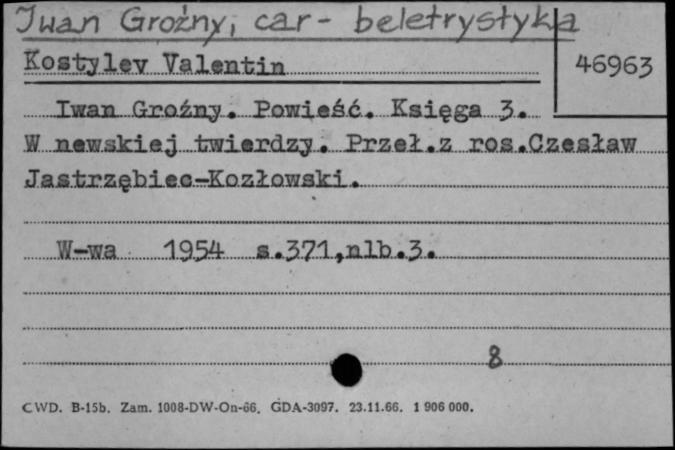 Iwan Groźny, car - beletrystyka
Kostylev Valentin
46963
Iwan Groźny. Powieść. Księga 3.
W newskiej twierdzy. Przeł.z ros.Czesław
Jastrzębiec-Kozłowski.
W-wa 1954 s.371,nlb.3.
8
CWD. B-15b. Zam. 1008-DW-On-66. GDA-3097. 23.11.66. 1 906 000.